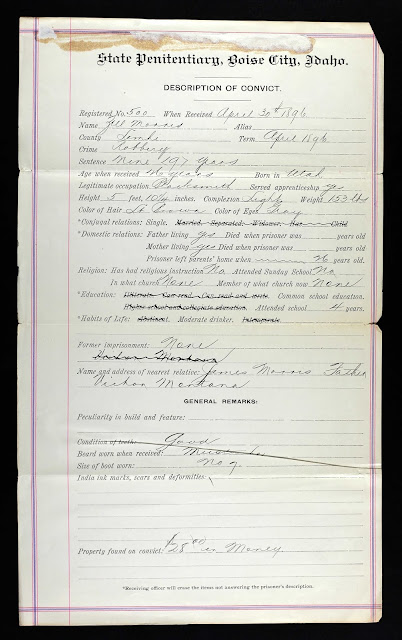 State Penitentiary, Boise City, Idaho.
DESCRIPTION OF CONVICT.
Registered No. 500 When Received April 30th 1896
Name Morris Alias
County Lemhi Term April 1896
Crime Robbery
Sentence Nine (9) Years
Age when received 26 years Born in Utah
Legitimate occupation Blacksmith Served apprenticeship yes
Height 5 feet, 10 inches. Complexion Light Weight 153 lbs
Color of Hair Lt Brown Color of Eyes Gray
*Conjugal relations: Single. Married. Separated. Widower. Has Child
*Domestic relations: Father living yes Died when prisoner was years old
Mother living yes Died when prisoner was years old
Prisoner left parents' home when 26 years old
Religion: Has had religious instruction No Attended Sunday School No
In what church None Member of what church now None
*Education: Illiterate. Can read. Can read and write. Common school education.
Higher school and collegiate education. Attended school 4 years.
*Habits of Life: Abstinent. Moderate drinker. Intemperate.
Former imprisonment: None
Montana
Name and address of nearest relative: James Morris Father
Montana
GENERAL REMARKS:
Peculiarity in build and feature:
Condition of teeth: Good
Beard worn when received:
Size of boot worn: No 7.
India ink marks, scars and deformities:
Property found on convict: $28 00 in Money
*Receiving officer will erase the items not answering the prisoner's description.